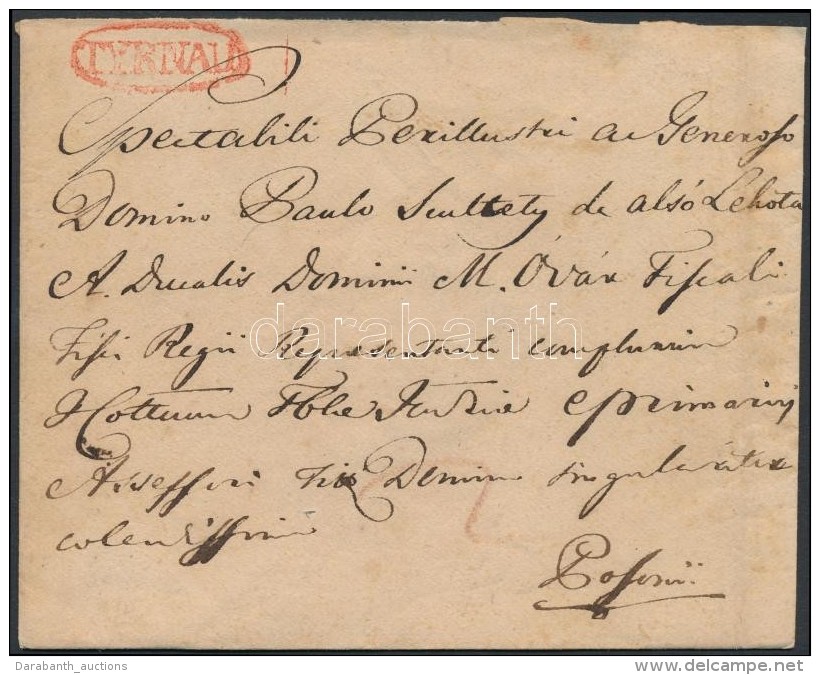 TYRNAU
Spectabili Perillustri ac Generoso
Domino Paulo Scultety de alsó Lehota
A. Ducalis Dominii M. Óvár Fiscali
Fisci Regii Representanti complurium
Cottuum Tblae Judriae Primariij
Assessori Domino singulariter
colendissimo
Posonii
darabanth
Darabanth_auctions
http://www.delcampe.net